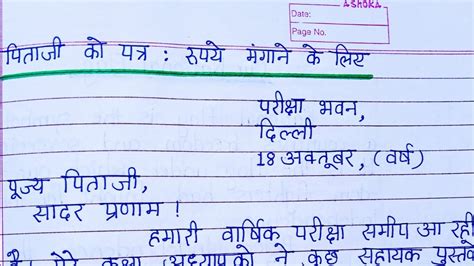 ASHOKA
Date:
Page No.
पिताजी को पत्र : रुपये मंगाने के लिए
परीक्षा भवन,
दिल्ली
18 अक्तूबर, (वर्ष)
पूज्य पिताजी,
सादर प्रणाम !
हमारी वार्षिक परीक्षा समीप आ रही
है। मेरे कक्षा अध्यापकों ने कुछ सहायक पुस्त